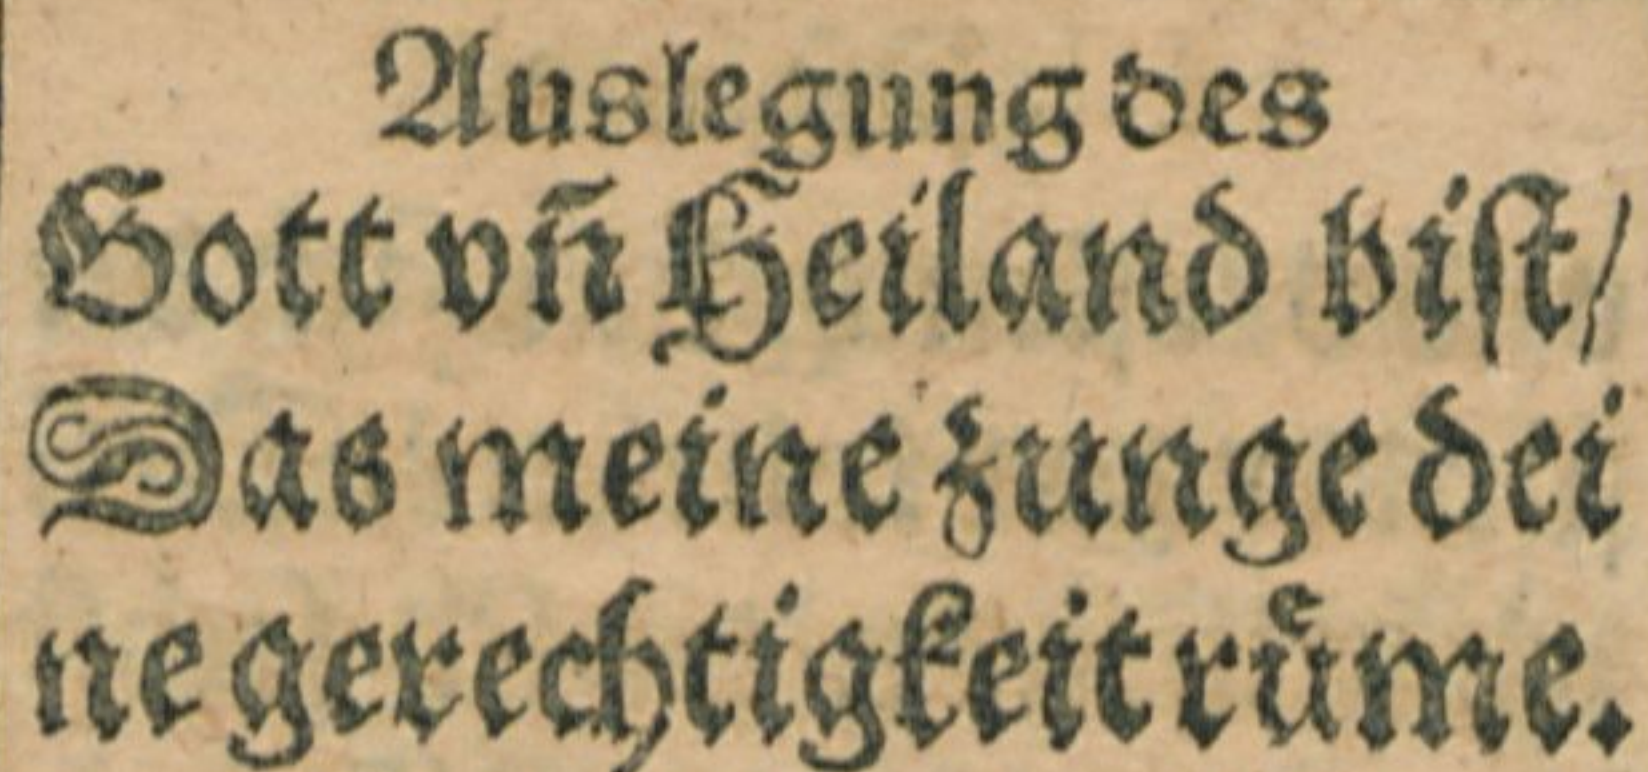 Auslegung des
Gott vn̄ Heiland biſt/
Das meine zunge dei
ne gerechtigkeit ruͤme.